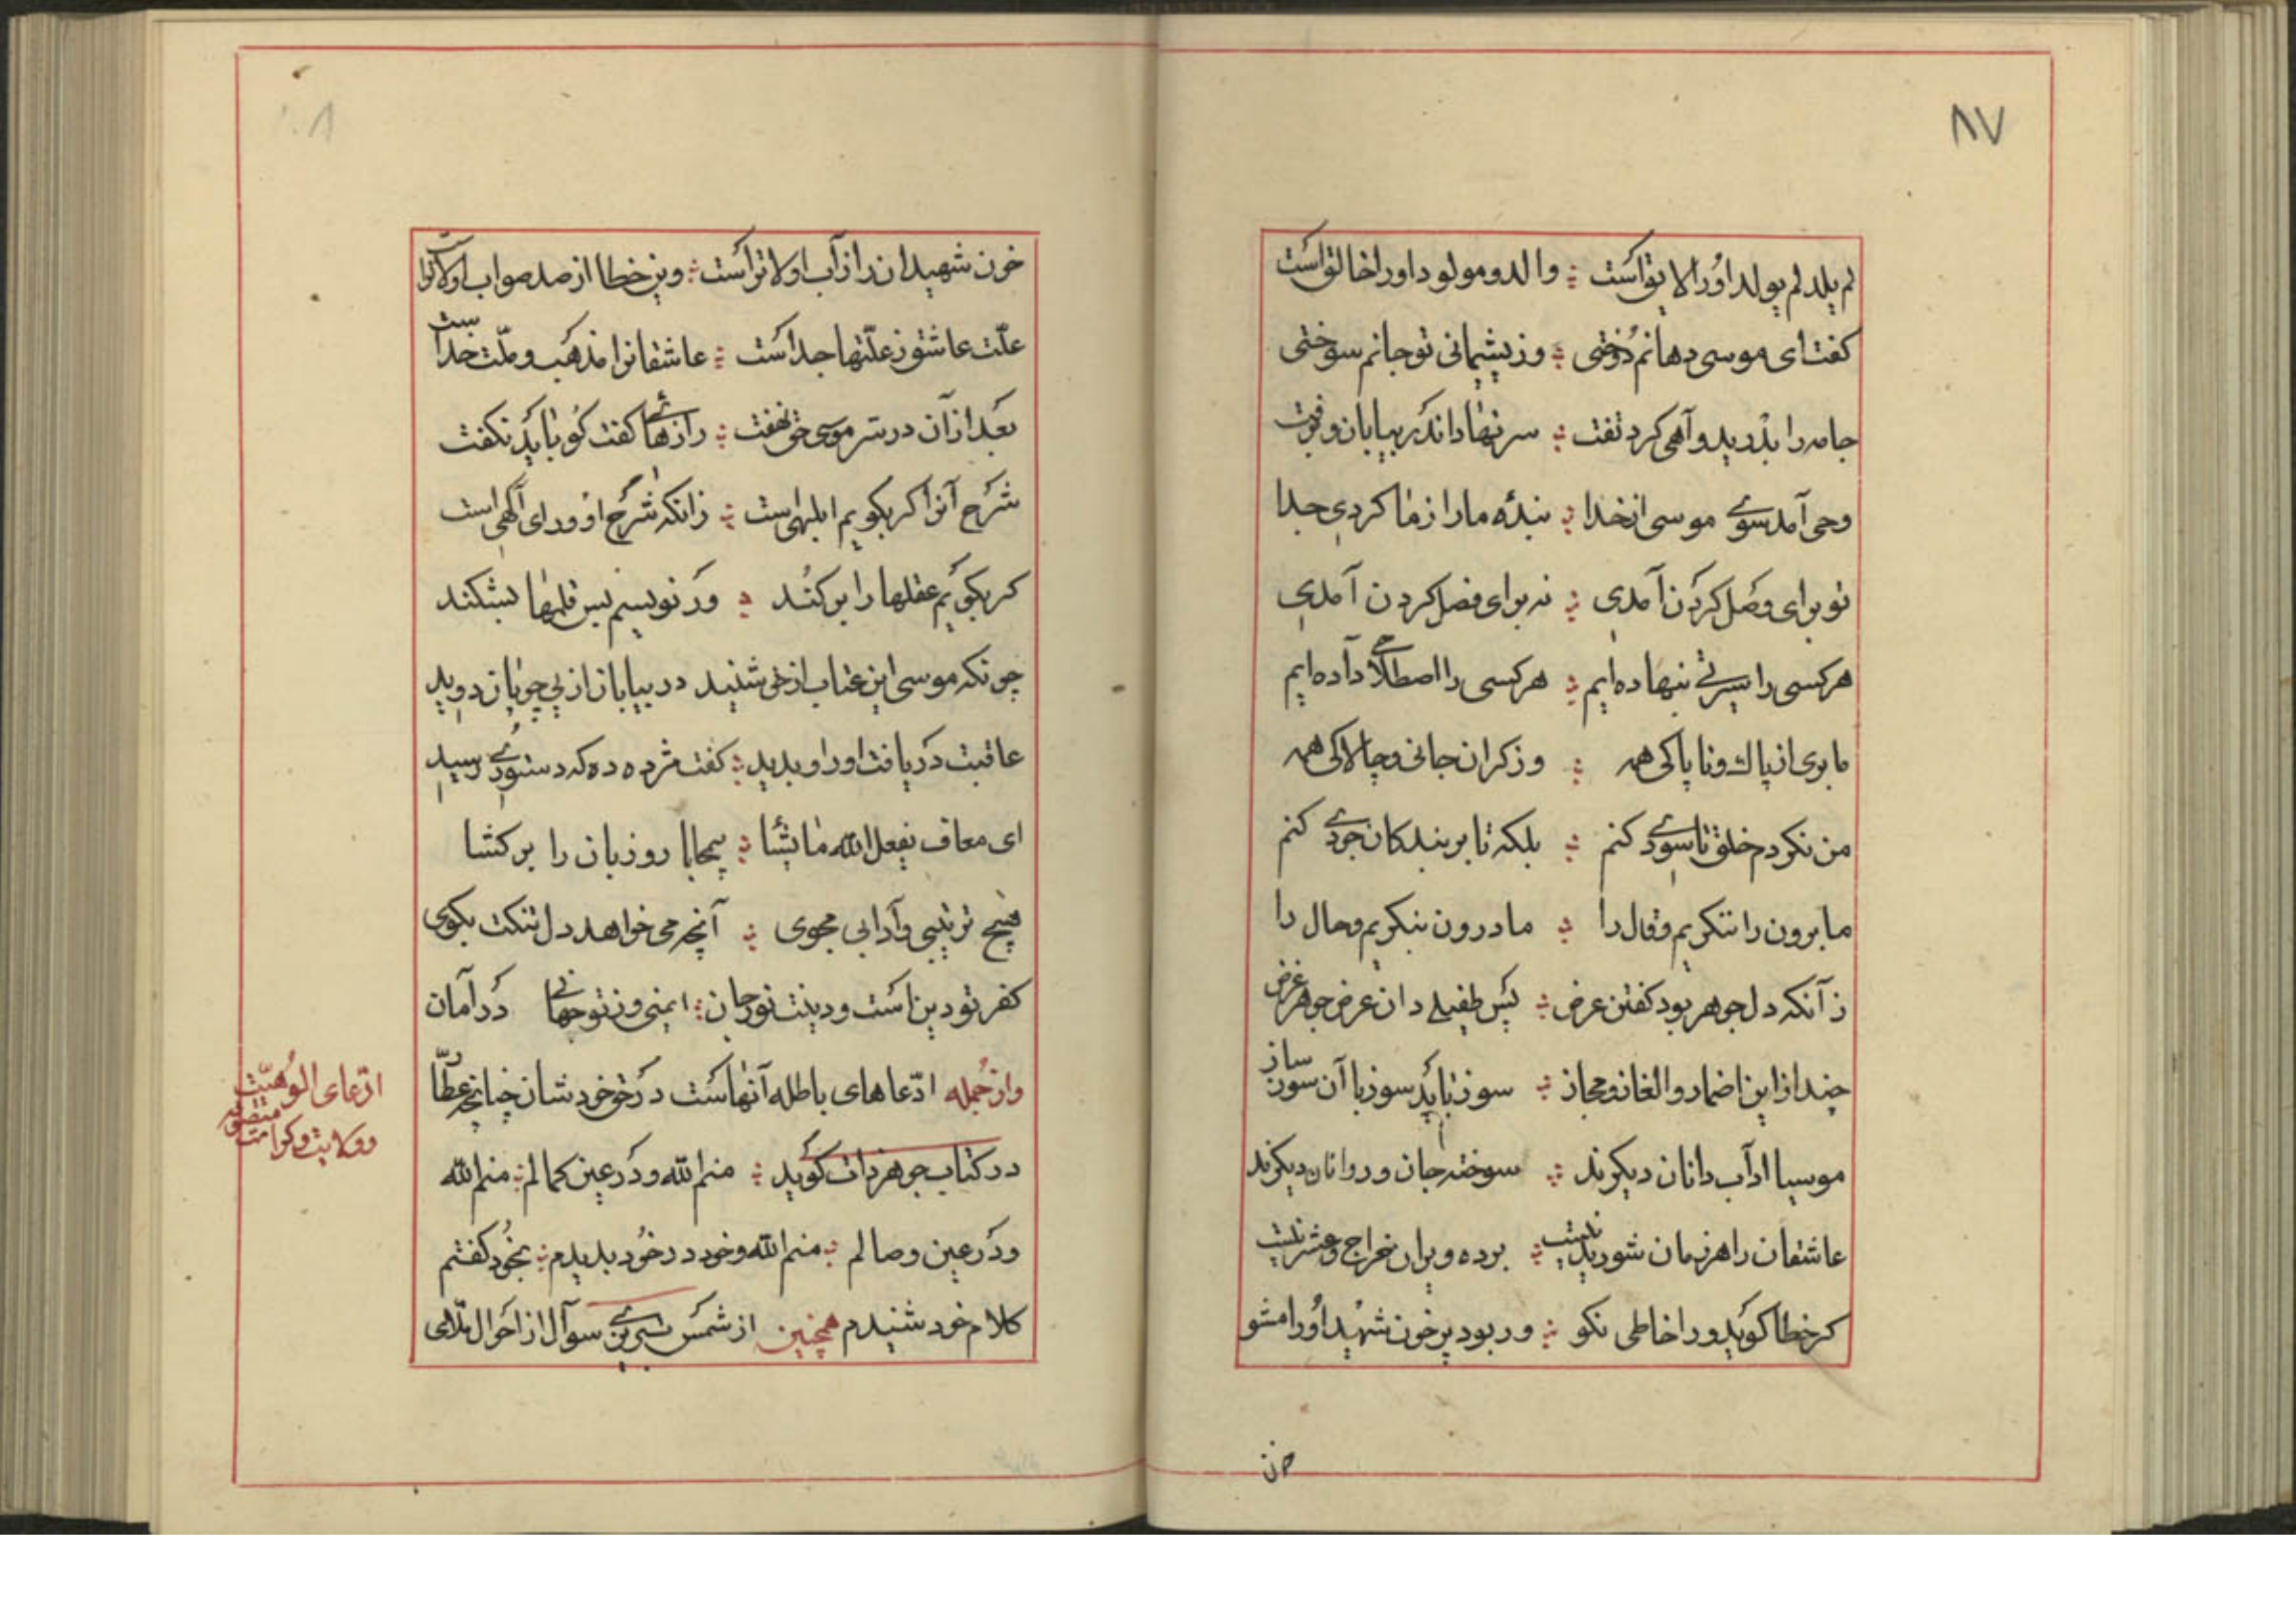 ۸۷
لم یلد لم یولد اورا لایق است ؞ والد و مولود اورا خالق است
کفت ای موسی دهانم دوختی ؞ وز پشیمانی تو جانم سوختی
جامه را بدرید و آهی کرد تفت ؞ سر نهاد اندر بیابان و رفت
وحی آمد سوی موسی از خدا ؞ بندهٔ ما را ز ما کردی جدا
تو برای وصل کردن آمدی ؞ نه برای فصل کردن آمدی
هر کسی را سیرتی بنهاده ایم ؞ هر کسی را اصطلاحی داده ایم
ما بری از پاک و ناپاکی همه ؞ وز کران جانی و چالاکی همه
من نکردم خلق تا سودی کنم ؞ بلکه تا بر بندکان جودی کنم
ما برون را ننکریم و قال را ؞ ما درون بنکریم و حال را
زآنکه دل جوهر بود کفتن عرض ؞ پس طفیلی دان عرض جوهر غرض
چند ازاین اضمار و الغاز و مجاز ؞ سوز باید سوز با آن سوز ساز
موسیا آداب دانان دیکرند ؞ سوخته جان و روانان دیکرند
عاشقان را هر زمان شوریدنیست ؞ بر ده ویران خراج و عشر نیست
کر خطا کوید ورا خاطی نکو ؞ ور بود پر خون شهید اورا مشو
خون
۱۰۸
خون شهیدان را ز آب اولاتر است ؞ وین خطا از صد صواب اولاتر است
علّت عاشق ز علّتها جداست ؞ عاشقانرا مذهب و ملّت خداست
بعد از آن در سر موسی حق نهفت ؞ رازهائی کفت کو باید نکفت
شرح آنرا کر بکویم ابلهی است ؞ زانکه شرح او ورای آکهی است
کر بکویم عقلها را برکند ؞ ور نویسم بس قلمها بشکند
چونکه موسی این عتاب از حق شنید در بیابان از پی چوپان دوید
عاقبت دریافت اورا و بدید ؞ کفت مژده ده که دستوری رسید
ای معاف یفعل الله ما یشا ؞ بیمحابا رو زبان را بر کشا
هیچ ترتیبی و آدابی مجوی ؞ آنچه می خواهد دل تنکت بکوی
کفر تو دین است و دینت نور جان ؞ ایمنی وز تو جهانی در امان
وازجمله ادّعاهای باطله آنهاست در حق خودشان چنانچه عطّار
در کتاب جوهر ذات کوید ؞ منم الله و در عین کمالم ؞ منم الله
ودر عین وصالم ؞ منم الله و خود در خود بدیدم ؞ بخود کفتم
کلام خود شنیدم همچنین از شمس تبریزی سوآل از احوال ملّای
ادّعای الوُهیّت
متصوفه
وولایت و کرامت